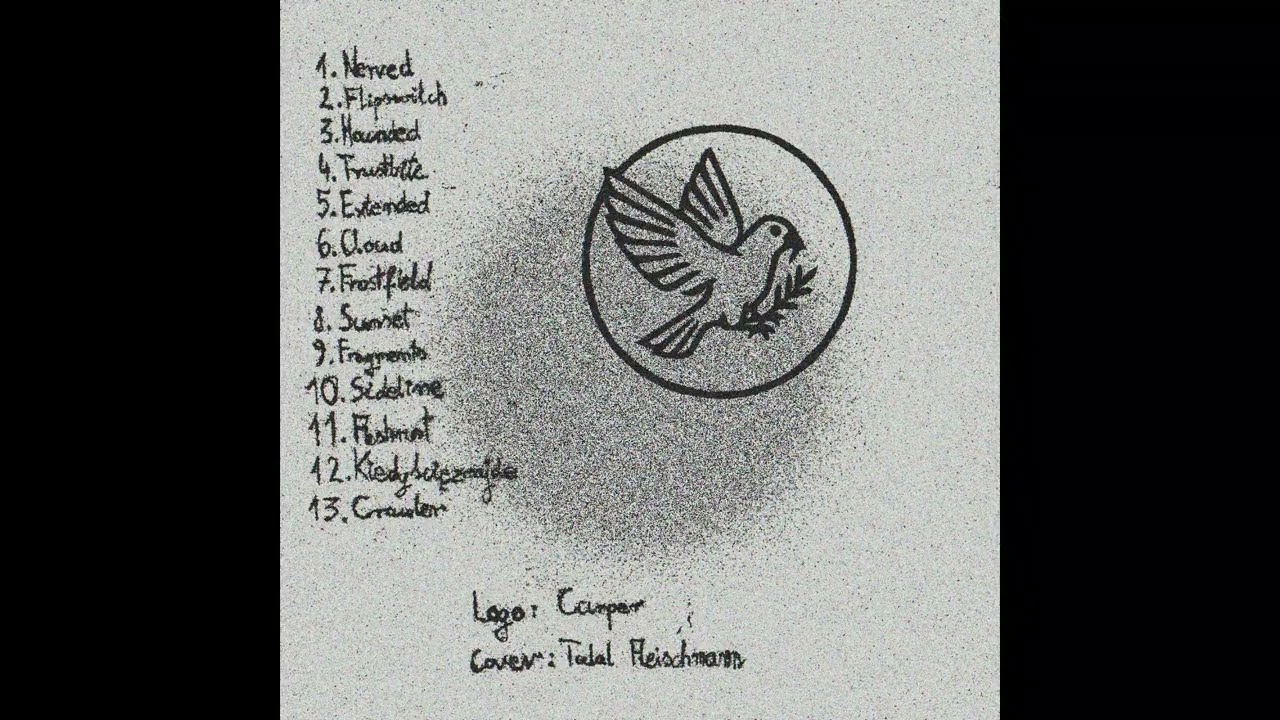 1. Nerved
2. Flipswitch
3. Haunted
4.
5. Extended
6. Cloud
7. Frostfield
8. Sunset
9. Fragments
10. Sideline
11.
12.
13. Crawler
Logo: Camper
Cover: Talal Fleischmann